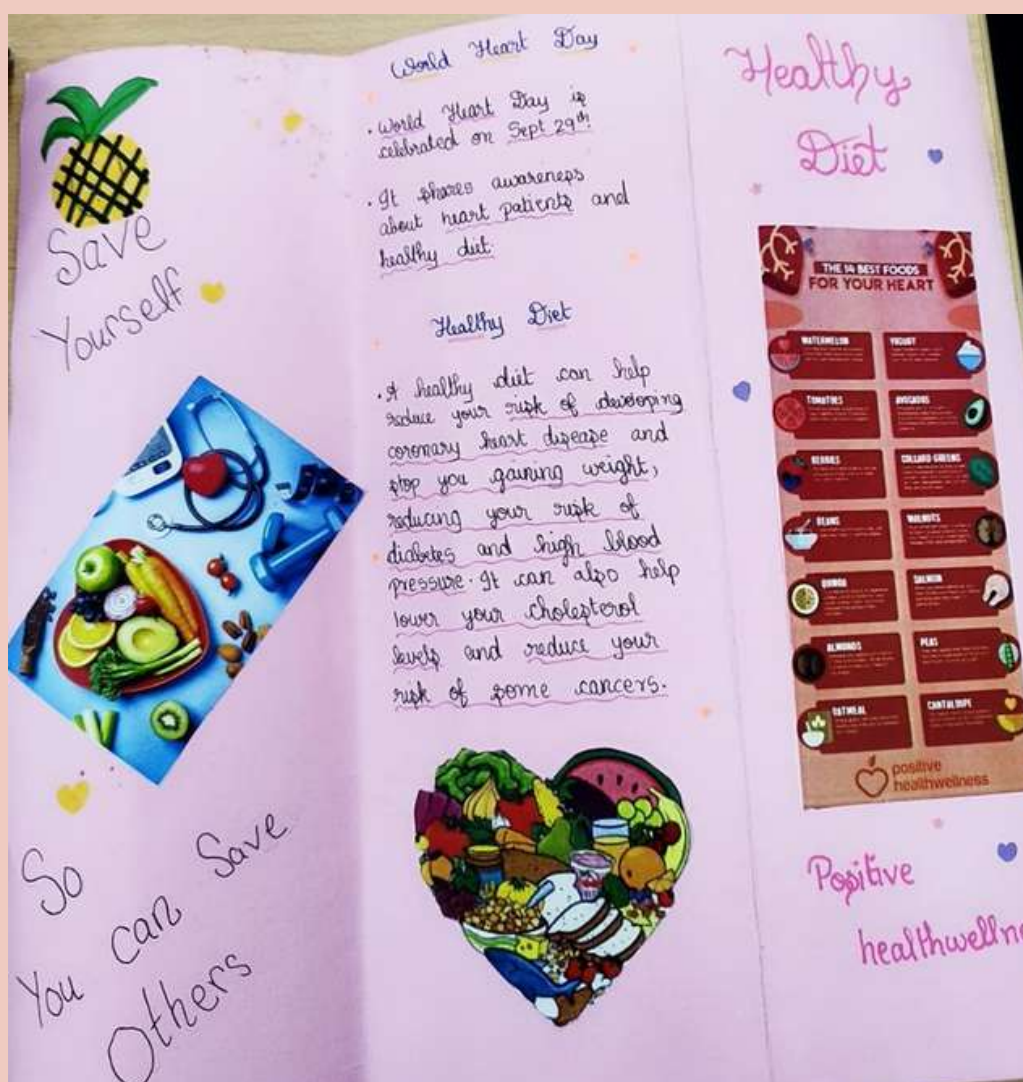 Save
Yourself
So
You can Save
Others
World Heart Day
• World Heart Day is
celebrated on Sept 29th.
• It shares awareness
about heart patients and
healthy diet
Healthy Diet
• A healthy diet can help
reduce your risk of developing
coronary heart disease and
stop you gaining weight,
reducing your risk of
diabetes and high blood
pressure. It can also help
lower your cholesterol
levels and reduce your
risk of some cancers.
Healthy
Diet
THE 14 BEST FOODS
FOR YOUR HEART
WATERMELON
YOGURT
TOMATOES
AVOCADOS
BERRIES
COLLARD GREENS
BEANS
WALNUTS
QUINOA
SALMON
ALMONDS
PEAS
OATMEAL
CANTALOUPE
positive
healthwellness
Positive
healthwellne